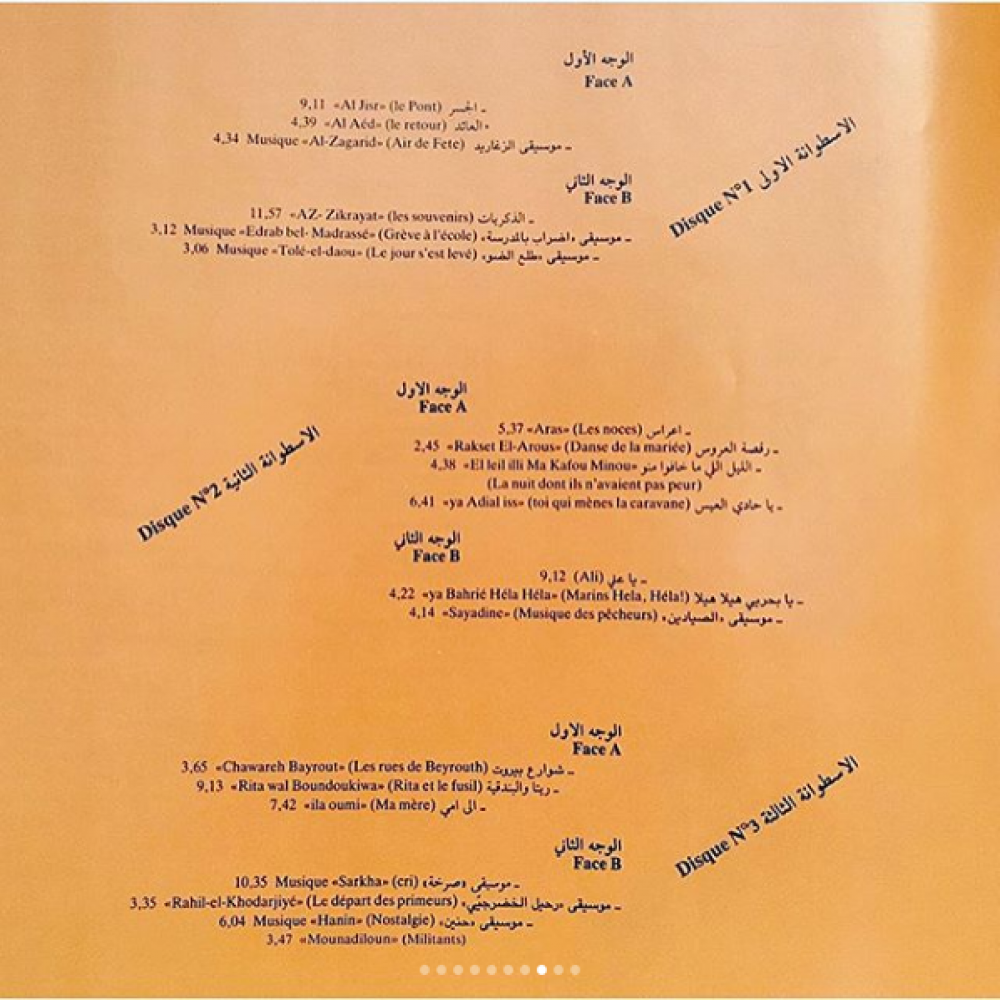 الوجه الأول
Face A
9,11 «Al Jisr» (le Pont) ـ الجسر
4,39 «Al Aéd» (le retour) «العائد
4,34 Musique «Al-Zagarid» (Air de Fete) ـ موسيقى الزغاريد
الاسطوانة الاولى Disque N°1
الوجه الثاني
Face B
11,57 «AZ- Zikrayat» (les souvenirs) ـ الذكريات
3,12 Musique «Edrab bel- Madrassé» (Grève à l'école) ـ موسيقى «اضراب بالمدرسة»
3,06 Musique «Tolé-el-daou» (Le jour s'est levé) ـ موسيقى «طلع الضو»
الوجه الاول
Face A
الاسطوانة الثانية Disque N°2
5,37 «Aras» (Les noces) ـ اعراس
2,45 «Rakset El-Arous» (Danse de la mariée) ـ رقصة العروس
4,38 «El leil illi Ma Kafou Minou» ـ الليل اللي ما خافوا منو
(La nuit dont ils n'avaient pas peur)
6,41 «ya Adial iss» (toi qui mènes la caravane) ـ يا حادي العيس
الوجه الثاني
Face B
9,12 (Ali) ـ يا علي
4,22 «ya Bahrié Héla Héla» (Marins Hela, Héla!) ـ يا بحريي هيلا هيلا
4,14 «Sayadine» (Musique des pêcheurs) ـ موسيقى «الصيادين»
الوجه الاول
Face A
3,65 «Chawareh Bayrout» (Les rues de Beyrouth) ـ شوارع بيروت
9,13 «Rita wal Boundoukiwa» (Rita et le fusil) ـ ريتا والبندقية
7,42 «ila oumi» (Ma mère) ـ الى امي
الاسطوانة الثالثة Disque N°3
الوجه الثاني
Face B
10,35 Musique «Sarkha» (cri) ـ موسيقى «صرخة»
3,35 «Rahil-el-Khodarjiyé» (Le départ des primeurs) ـ موسيقى «رحيل الخضرجيي»
6,04 Musique «Hanin» (Nostalgie) ـ موسيقى «حنين»
3,47 «Mounadiloun» (Militants)